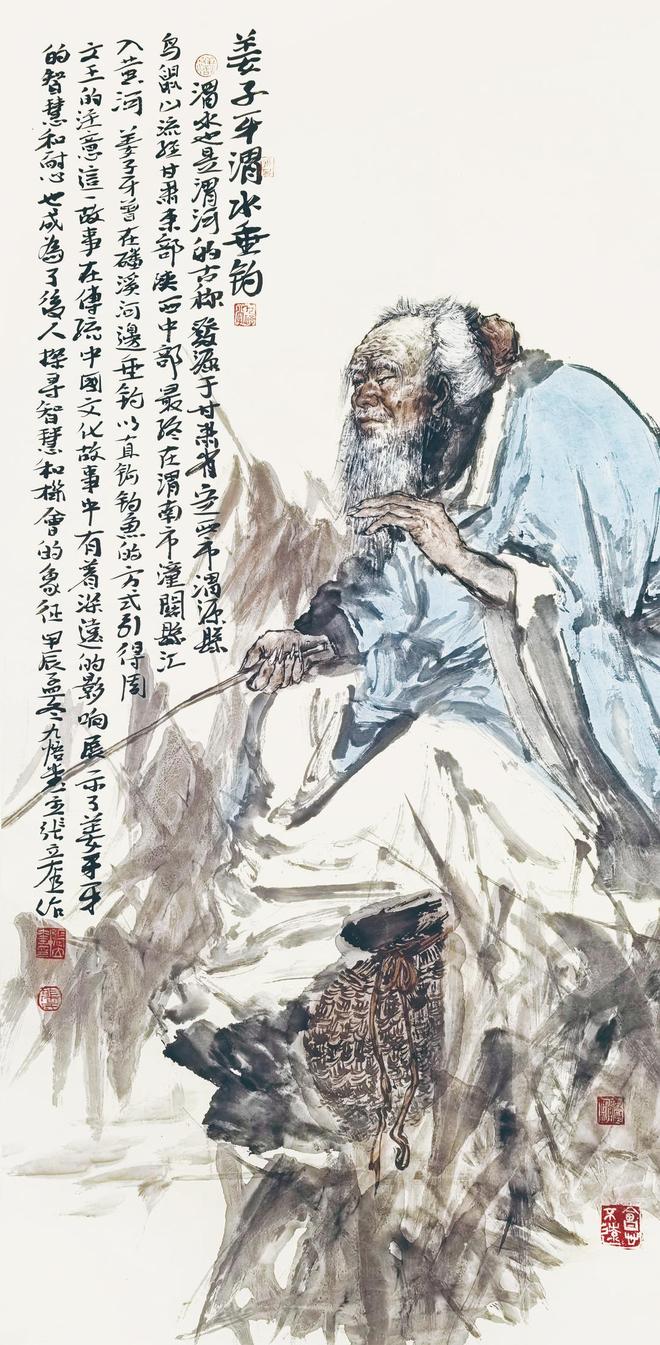 姜子牙渭水垂钓
渭水也是渭河的古称 發源于甘肃省定西市渭源縣
鸟鼠山流经甘肃東部陕西中部最终在渭南市潼關縣汇
入黄河 姜子牙曾在磻溪河邊垂钓以直钩钓魚的方式引得周
文王的注意這一故事在傳統中國文化故事中有着深遠的影响展示了姜子牙
的智慧和耐心也成為了後人探寻智慧和機會的象征 甲辰孟冬九悟堂主張立奎作